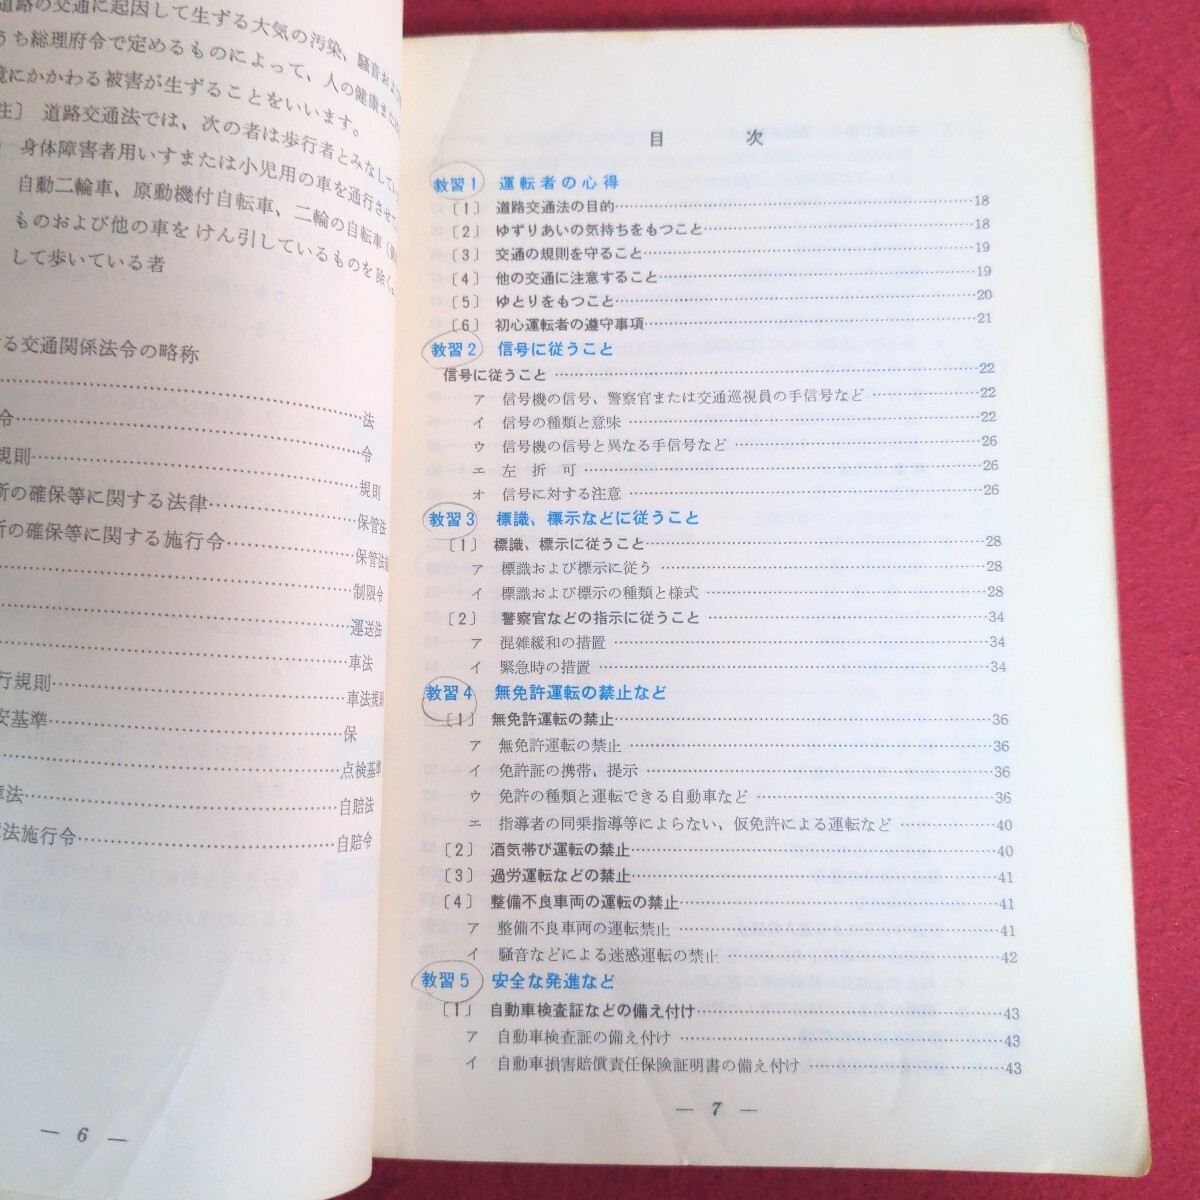 道路の交通に起因して生ずる大気の汚染、騒音および
うち総理府令で定めるものによって、人の健康または
境にかかわる被害が生ずることをいいます。
注〕 道路交通法では、次の者は歩行者とみなしてい
身体障害者用いすまたは小児用の車を通行させて
自動二輪車、原動機付自転車、二輪の自転車
ものおよび他の車をけん引しているものを除く。
して歩いている者
る交通関係法令の略称
法
令 令
規則 規則
所の確保等に関する法律 保管法
所の確保等に関する施行令 保管法施
制限令
運送法
車法
行規則 車法規則
安基準 保
点検基準
障法 自賠法
法施行令 自賠令
― 6 ―
目 次
教習1 運転者の心得
〔1〕 道路交通法の目的 18
〔2〕 ゆずりあいの気持ちをもつこと 18
〔3〕 交通の規則を守ること 19
〔4〕 他の交通に注意すること 19
〔5〕 ゆとりをもつこと 20
〔6〕 初心運転者の遵守事項 21
教習2 信号に従うこと
信号に従うこと 22
ア 信号機の信号、警察官または交通巡視員の手信号など 22
イ 信号の種類と意味 22
ウ 信号機の信号と異なる手信号など 26
エ 左折可 26
オ 信号に対する注意 26
教習3 標識、標示などに従うこと
〔1〕 標識、標示に従うこと 28
ア 標識および標示に従う 28
イ 標識および標示の種類と様式 28
〔2〕 警察官などの指示に従うこと 34
ア 混雑緩和の措置 34
イ 緊急時の措置 34
教習4 無免許運転の禁止など
〔1〕 無免許運転の禁止 36
ア 無免許運転の禁止 36
イ 免許証の携帯、提示 36
ウ 免許の種類と運転できる自動車など 36
エ 指導者の同乗指導等によらない、仮免許による運転など 40
〔2〕 酒気帯び運転の禁止 40
〔3〕 過労運転などの禁止 41
〔4〕 整備不良車両の運転の禁止 41
ア 整備不良車両の運転禁止 41
イ 騒音などによる迷惑運転の禁止 42
教習5 安全な発進など
〔1〕 自動車検査証などの備え付け 43
ア 自動車検査証の備え付け 43
イ 自動車損害賠償責任保険証明書の備え付け 43
― 7 ―